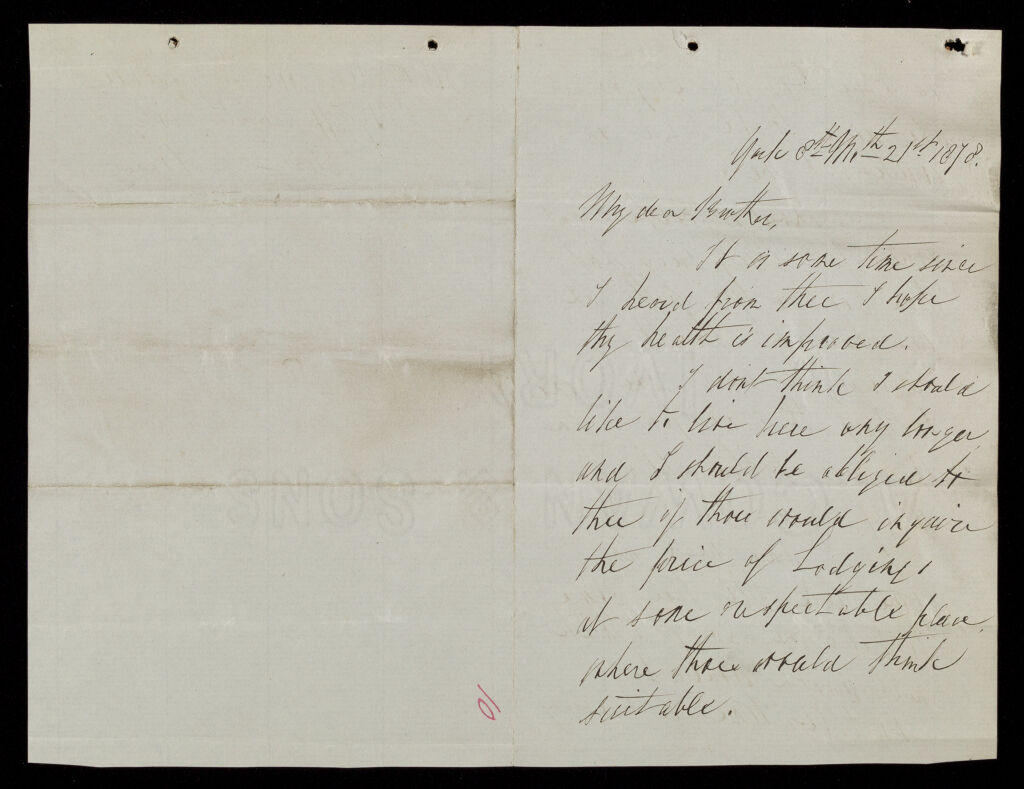 York 8th Mo.th 21st 1878.
My dear Brother,
It is some time since
I heard from thee I hope
thy health is improved.
I dont think I should
like to live here any longer
and I should be obliged to
thee if thou would inquire
the price of Lodgings
at some respectable place
where thou would think
suitable.
10